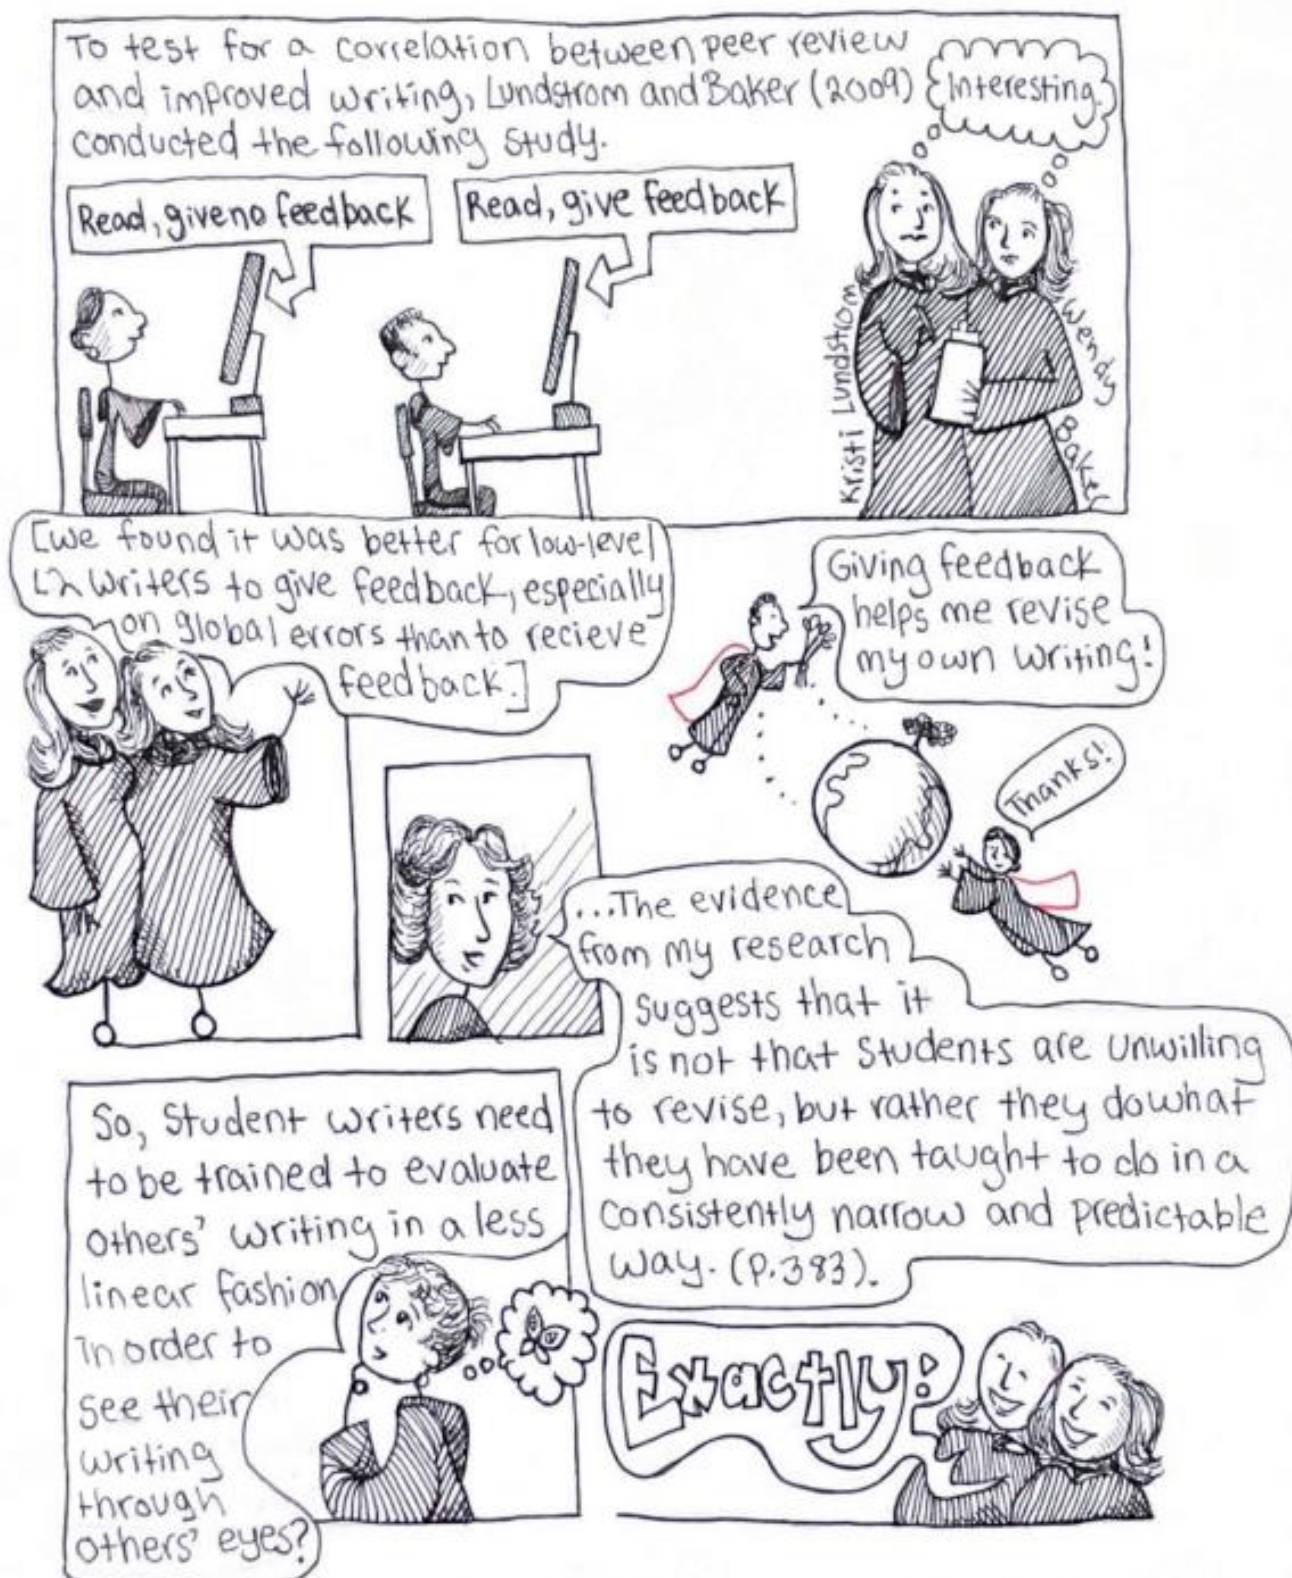 To test for a correlation between peer review
and improved writing, Lundstrom and Baker (2009)
conducted the following study.
Interesting.
Read, give no feedback
Read, give feedback
Kristi Lundstrom
Wendy Baker
[we found it was better for low-level
L2 writers to give feedback, especially
on global errors than to recieve
feedback.]
Giving feedback
helps me revise
my own writing!
Thanks!
...The evidence
from my research
suggests that it
is not that students are unwilling
to revise, but rather they do what
they have been taught to do in a
consistently narrow and predictable
way. (p.383).
So, student writers need
to be trained to evaluate
others' writing in a less
linear fashion
in order to
see their
writing
through
others' eyes?
Exactly!